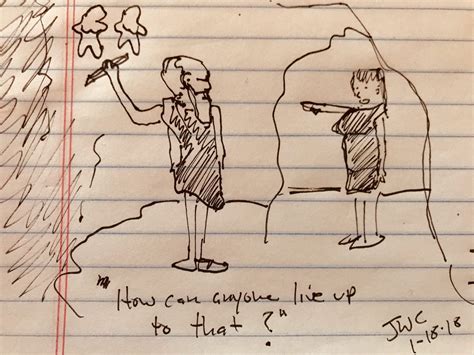 "How can anyone live up
to that?"
JWC
1-18-18